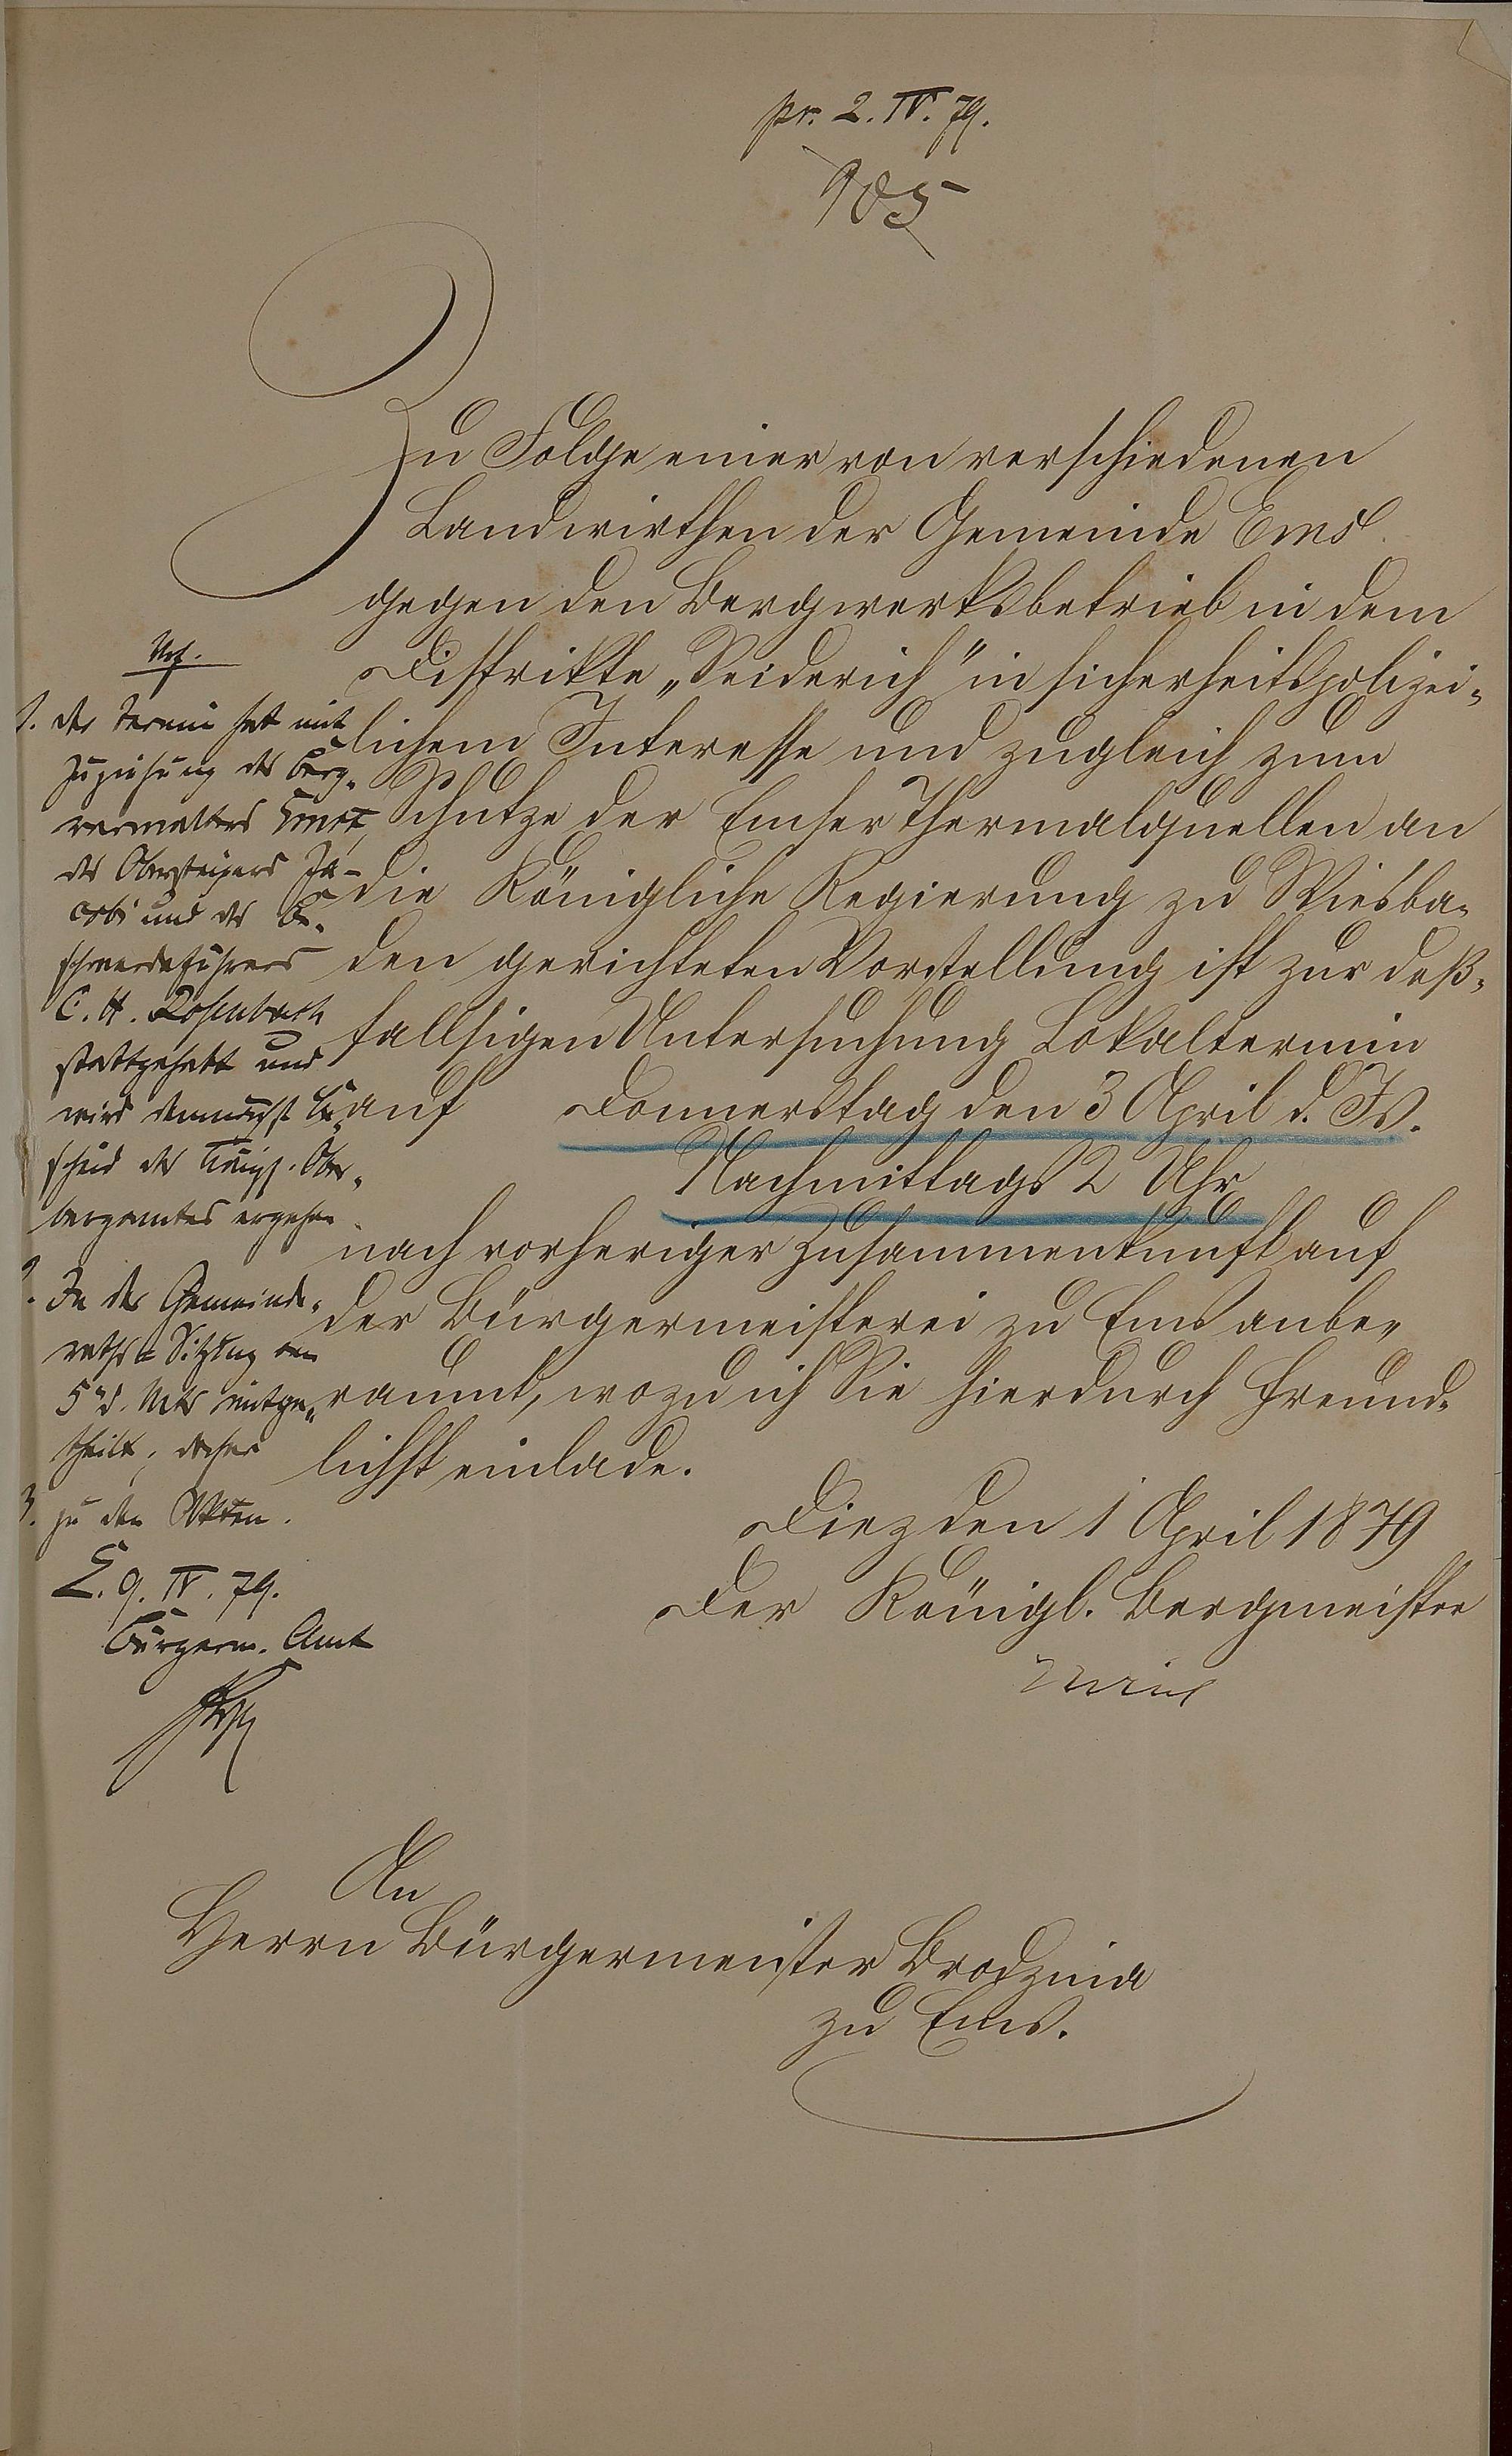 pr. 2. IV. 79.
105
Zu Folge einer von verschiedenen
Landwirthen der Gemeinde Ems
gegen den Bergwerksbetrieb in dem
Distrikte „Seiderich" in sicherheitspolizei-
lichem Interesse und zugleich zum
Schutze der Emser Thermalquellen an
die Königliche Regierung zu Wiesba-
den gerichteten Vorstellung ist zur deß-
fallsigen Untersuchung Lokaltermin
auf Donnerstag den 3 April d. Js.
Nachmittags 2 Uhr
nach vorheriger Zusammenkunft auf
der Bürgermeisterei zu Ems anbe-
raumt, wozu ich Sie hierdurch freund-
lichst einlade.
Diez den 1 April 1879
Der Königl. Bergmeister
An
Herrn Bürgermeister
zu Ems.
1. Der Termin hat mit
Zuziehung des Berg-
verwalters
des Obersteigers Ja-
cobi und des Be-
schwerdeführers
C. H. Rosenbach
stattgehabt und
wird demnächst Be-
scheid des Königl. Ober-
bergamtes ergehen.
2. In der Gemeinde-
raths-Sitzung vom
5 d. Mts mitge-
theilt; daher
3. zu den Akten.
E. 9. IV. 79.
Bürgerm. Amt